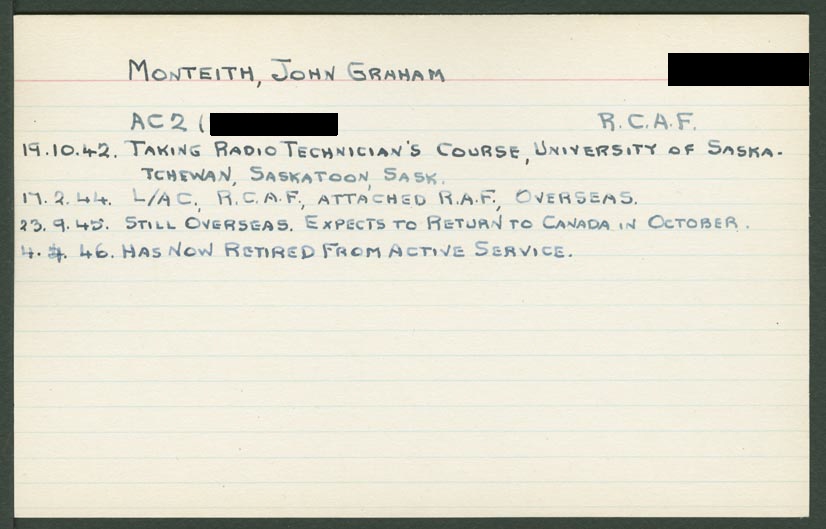 MONTEITH, JOHN GRAHAM
AC2 ( R.C.A.F.
19.10.42. TAKING RADIO TECHNICIAN'S COURSE, UNIVERSITY OF SASKA-
TCHEWAN, SASKATOON, SASK.
17.2.44. L/AC, R.C.A.F., ATTACHED R.A.F., OVERSEAS.
23.9.45. STILL OVERSEAS. EXPECTS TO RETURN TO CANADA IN OCTOBER.
4. 46. HAS NOW RETIRED FROM ACTIVE SERVICE.